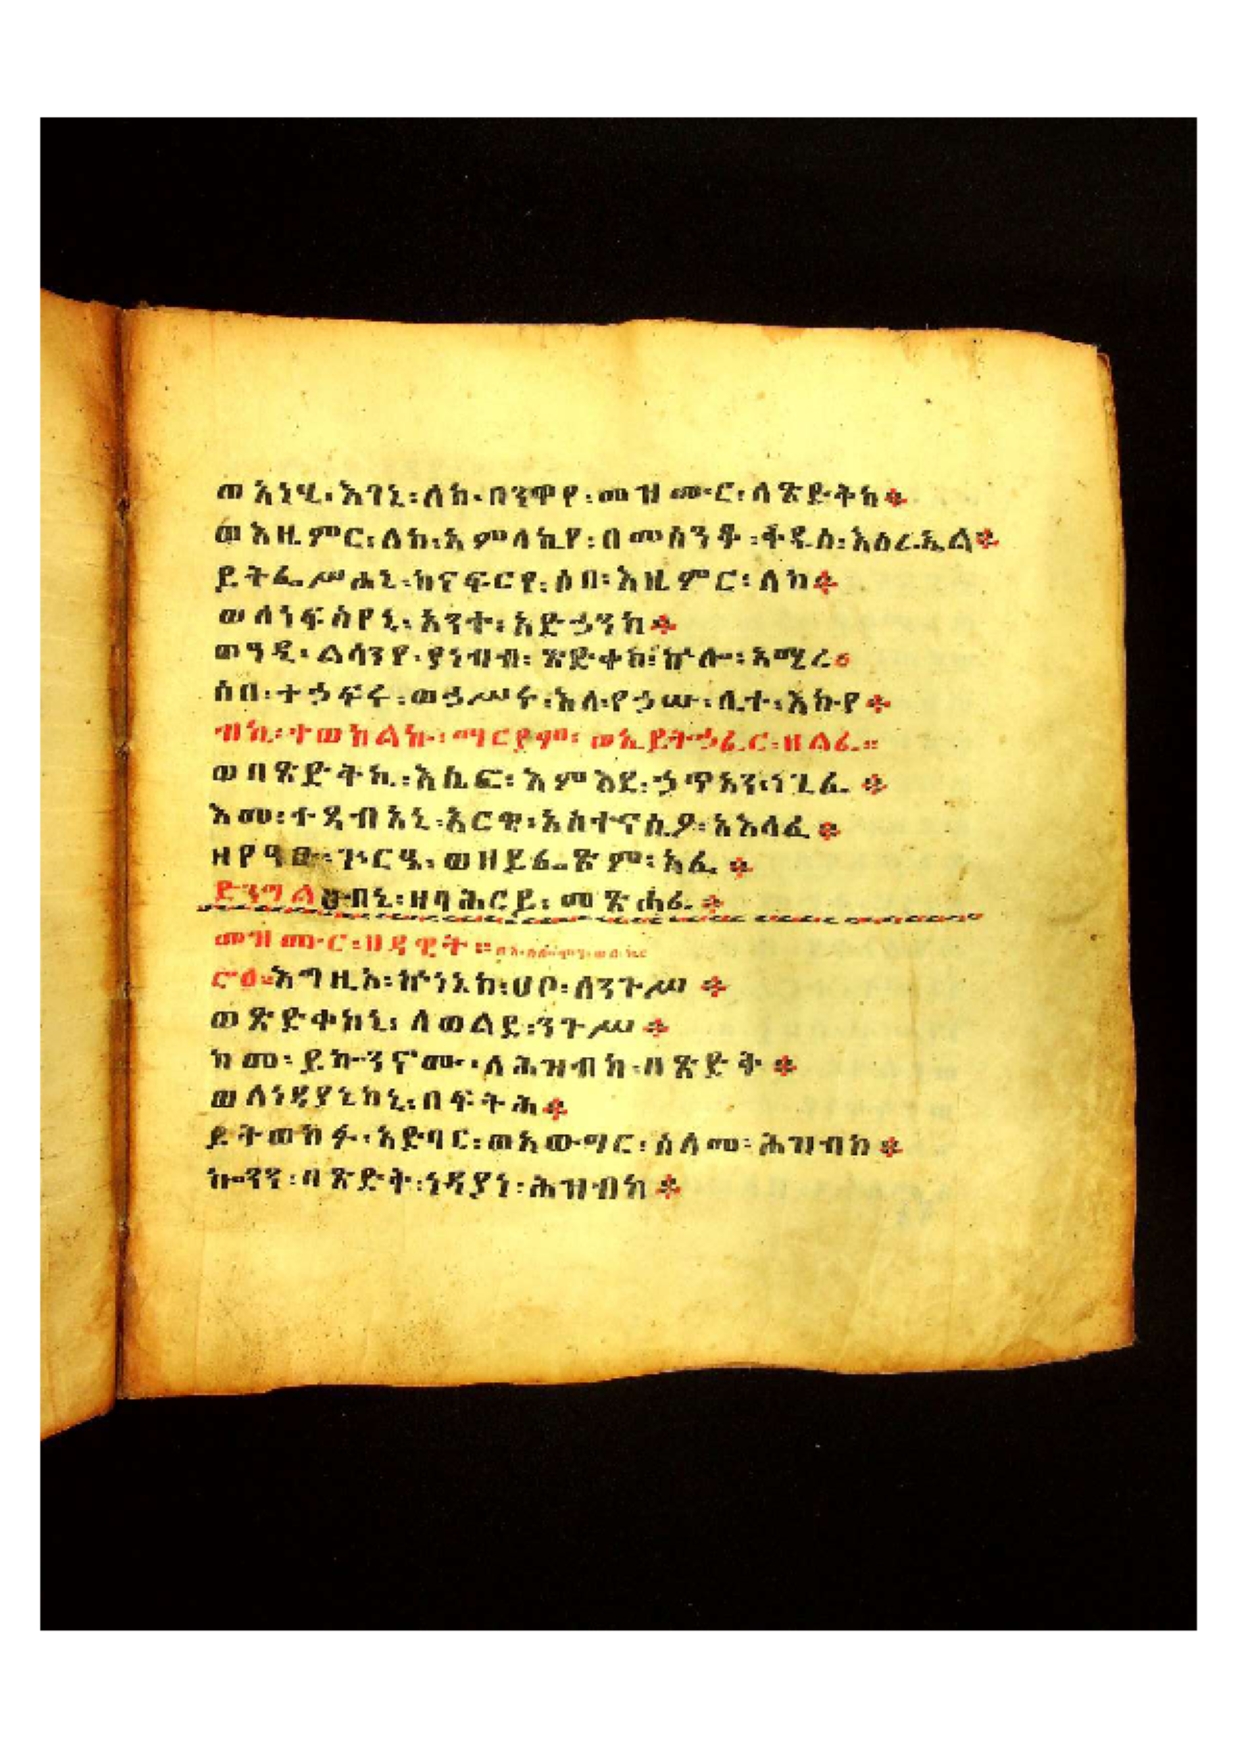 ወአነሂ፡እገኒ፡ለከ፡በንዋየ፡መዝሙር፡ለጽድቅከ፨
ወእዜምር፡ለከ፡አምላኪየ፡በመሰንቆ፡ቅዱሰ፡እስራኤል፨
ይትፌሥሐኒ፡ከናፍርየ፡ሶበ፡እዜምር፡ለከ፨
ወለነፍስየኒ፡አንተ፡አድኃንከ፨
ወዓዲ፡ልሳንየ፡ያነብብ፡ጽድቀከ፡ኵሎ፡አሚረ፨
ሶበ፡ተኃፍሩ፡ወኃሥሩ፡እለ፡የኃሡ፡ሊተ፡እኩየ፨
ብኪ፡ተወከልኩ፡ማርያም፡ወኢይትኃፈር፡ዘልፈ።
ወበጽድቅኪ፡እኪፍ፡እምእደ፡ኃጥአን፡ነጊፈ፨
እመ፡ተዳብአኒ፡አርዌ፡አስተናሲዎ፡አእላፈ፨
ዘየዓፁ፡ጕርዔ፡ወዘይፈጽም፡አፈ፨
ድንግል፡ዘባሕርይ፡መጽሐፈ፨
መዝሙር፡ዘዳዊት።በእንተ፡ሰሎሞን፡ወልዱ
እግዚኦ፡ኵነኔከ፡ሀቦ፡ለንጉሥ፨
ወጽድቀከኒ፡ለወልደ፡ንጉሥ፨
ከመ፡ይኰንኖሙ፡ለሕዝብከ፡በጽድቅ፨
ወለነዳያኒከኒ፡በፍትሕ፨
ይትወከፉ፡አድባር፡ወአውግር፡ሰላመ፡ሕዝብከ፨
ኰንን፡በጽድቅ፡ነዳያነ፡ሕዝብከ፨